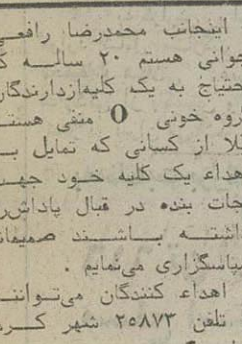 اینجانب محمدرضا رافعی
جوانی هستم ۲۰ ساله ک
حتیاج به یک کلیه‌ازدارندگان
روه خونی O منفی هستم
لا از کسانی که تمایل بـ
هداء یک کلیه خود جهـ
جات بنده در قبال پاداش‌را
اشته باشند صمیمان
سپاسگزاری می‌نمایم .
اهداء کنندگان می‌تواننـ
تلفن ۲۵۸۷۳ شهر کـر